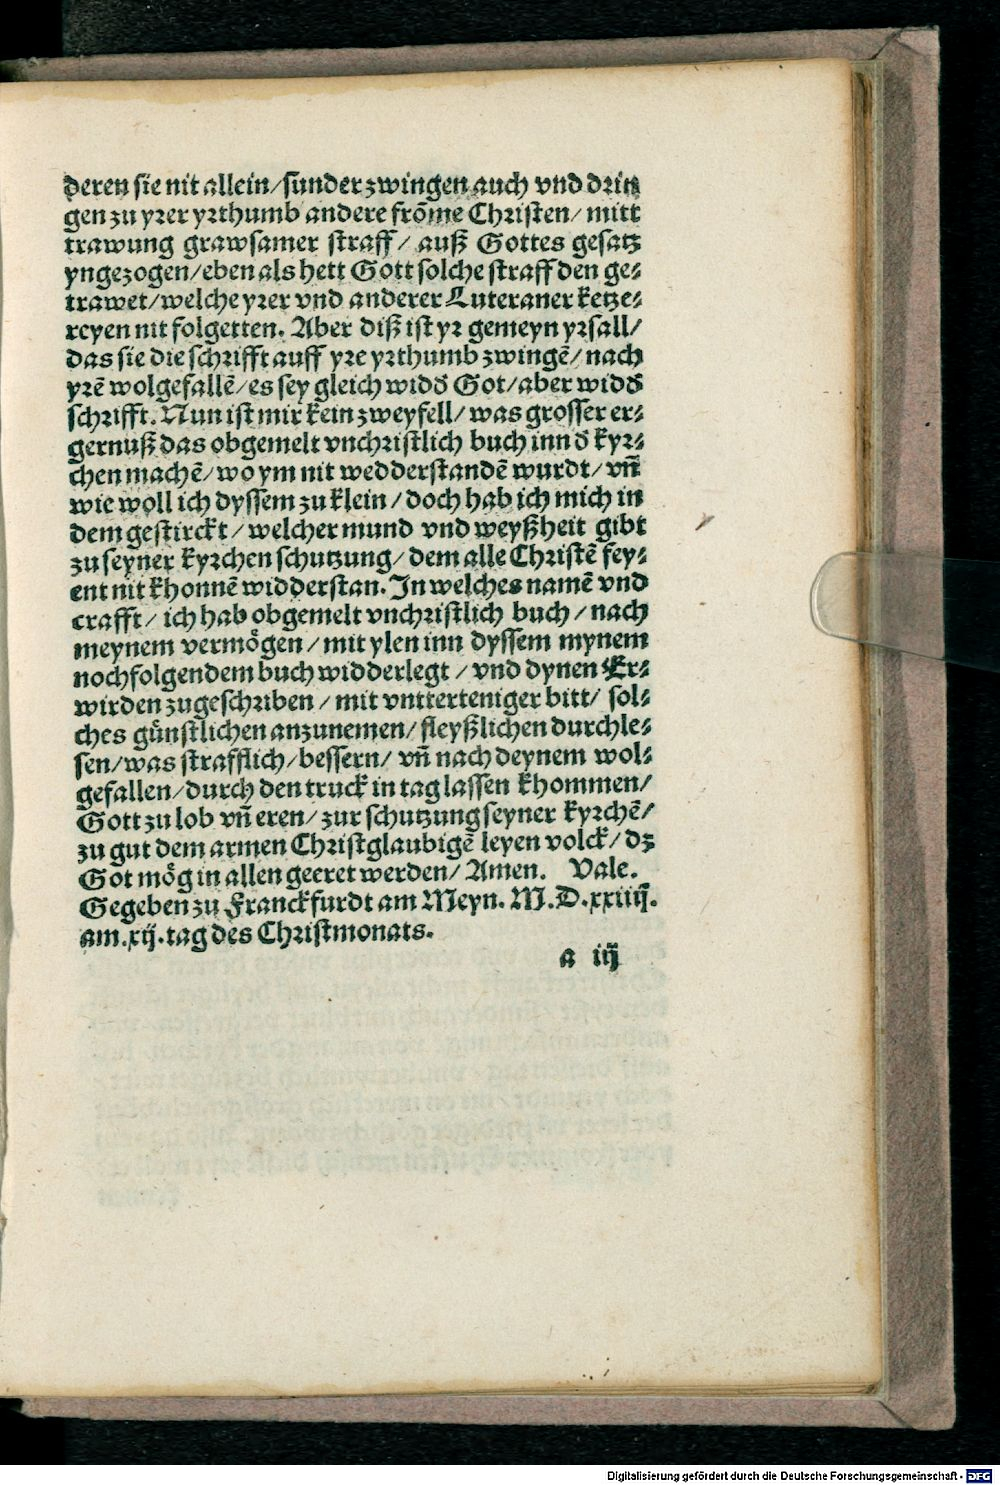 deren sie nit allein/sunder zwingen auch vnd drin
gen zu yrer yrthumb andere frõme Christen/ mitt
trawung grawsamer straff/ auß Gottes gesatz
yngezogen/eben als hett Gott solche straff den ge⸗
trawet/welche yrer vnd anderer Luteraner ketze⸗
reyen nit folgetten. Aber diß ist yr gemeyn yrsall/
das sie die schrifft auff yre yrthumb zwingẽ/nach
yrẽ wolgefallẽ/es sey gleich widď Got/aber widď
schrifft. Nun ist mir kein zweyfell/was grosser er⸗
gernuß das obgemelt vnchristlich buch inn ď kyr⸗
chen machẽ/wo ym nit wedderstandẽ wurdt/vñ
wie woll ich dyssem zu klein/doch hab ich mich in
dem gestirckt/welcher mund vnd weyßheit gibt
zu seyner kyrchen schutzung/dem alle Christẽ fey⸗
ent nit khonnẽ widderstan. In welches namẽ vnd
crafft/ ich hab obgemelt vnchristlich buch/nach
meynem vermögen/mit ylen inn dyssem mynem
nochfolgendem buch widderlegt/vnd dynen Er⸗
wirden zugeschriben/mit vntterteniger bitt/ sol⸗
ches günstlichen anzunemen/fleyßlichen durchle⸗
sen/was strafflich/bessern/ vñ nach deynem wol⸗
gefallen/durch den truck in tag lassen khommen/
Gott zu lob vñ eren/zur schutzung seyner kyrchẽ/
zu gut dem armen Christglaubigẽ leyen volck/dz
Got mög in allen geeret werden/Amen. Vale.
Gegeben zu Franckfurdt am Meyn. M.D.xxiiij.
am.xij.tag des Christmonats.
a iij
Digitalisierung gefördert durch die Deutsche Forschungsgemeinschaft - DFG